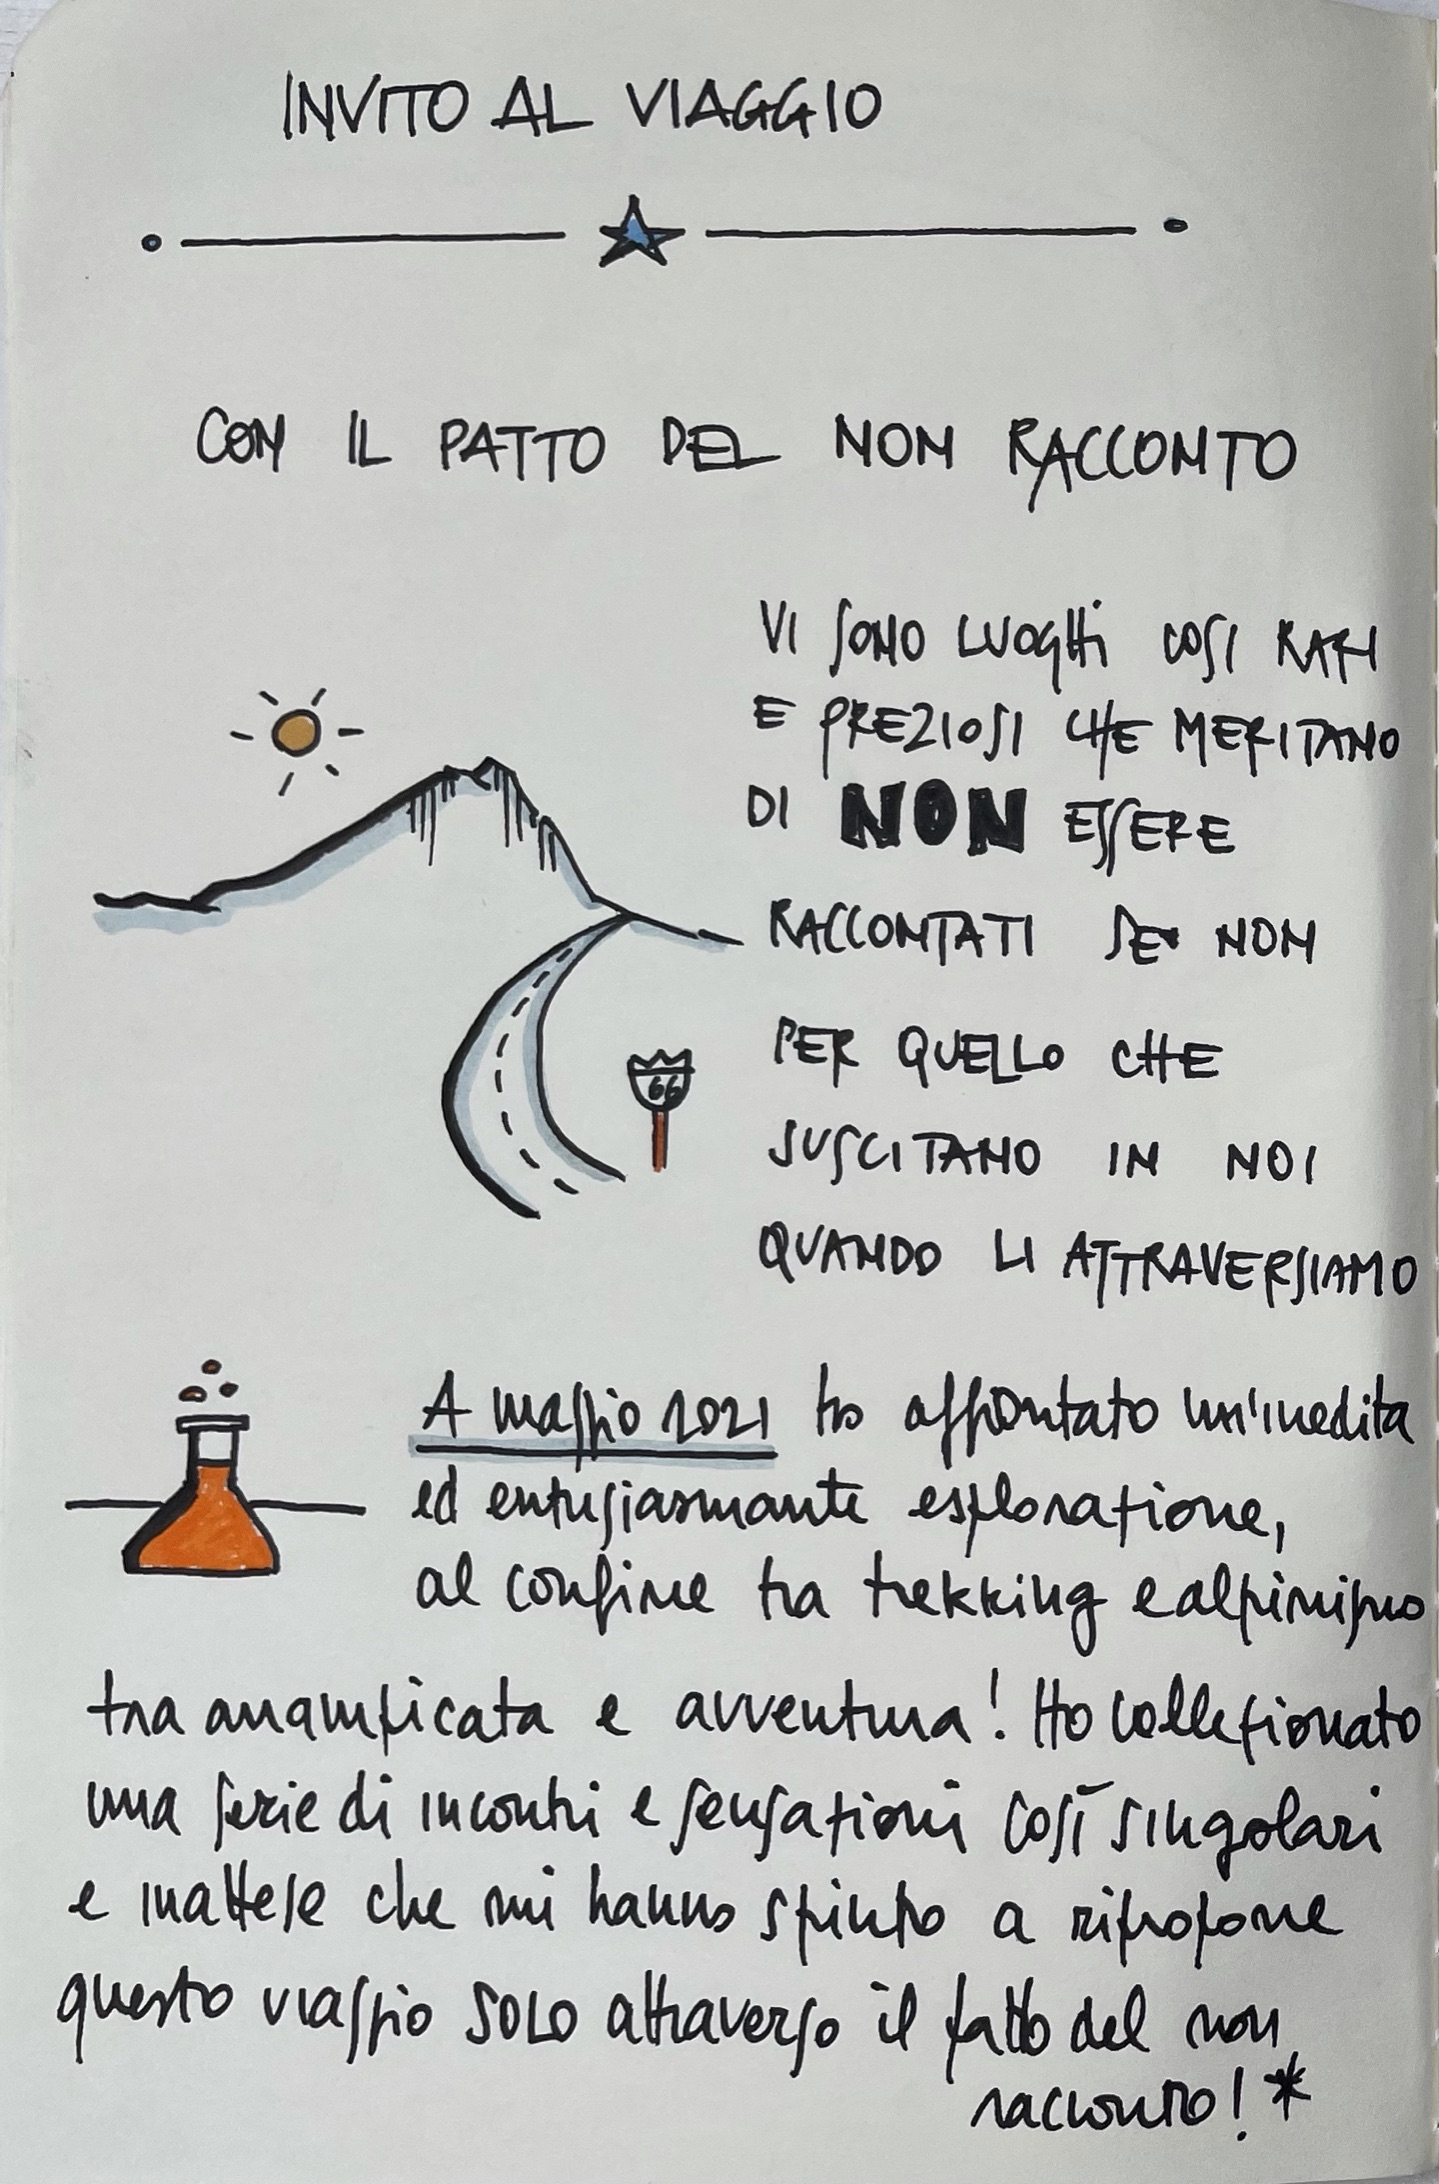 INVITO AL VIAGGIO
CON IL PATTO DEL NON RACCONTO
VI SONO LUOGHI COSI RARI
E PREZIOSI CHE MERITANO
DI NON ESSERE
RACCONTATI SE NON
PER QUELLO CHE
66
SUSCITANO IN NOI
QUANDO LI ATTRAVERSIAMO
A maggio 2021 ho affrontato un'inedita
ed entusiasmante esplorazione,
al confine tra trekking e alpinismo
tra arrampicata e avventura! Ho collezionato
una serie di incontri e sensazioni così singolari
e inattese che mi hanno spinto a riproporre
questo viaggio SOLO attraverso il patto del non
racconto! *